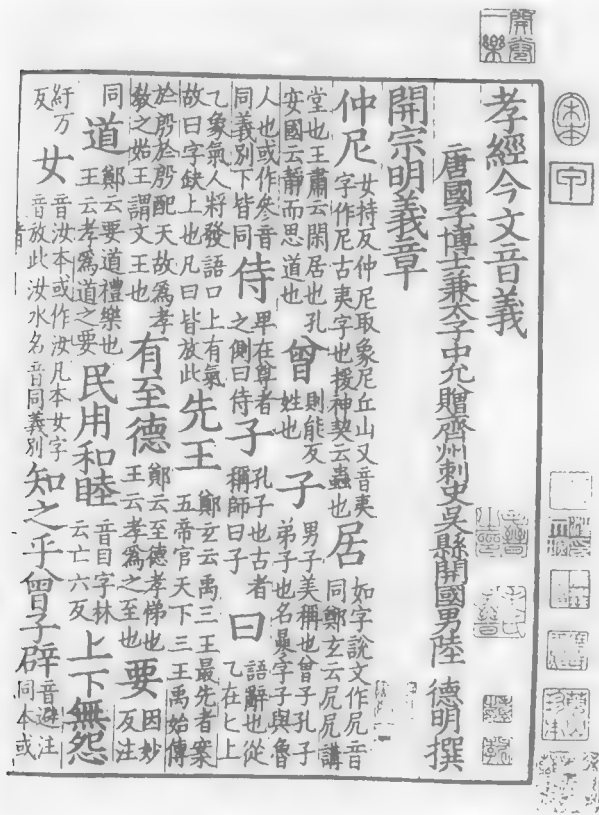 孝經今文音義
唐國子博士兼太子中允贈齊州刺史吳縣開國男陸 德明 撰
開宗明義章
仲尼女持反仲尼取象尼丘山又音夷字作𡰥古夷字也援神契云蟲也居如字說文作凥音同鄭玄云凥凥講
堂也王肅云閑居也孔安國云靜而思道也曾則能反姓也子男子美稱也曾子孔子弟子也名參字子與魯
人也或作叅音同義別下皆同侍卑在尊者之側曰侍子孔子也古者稱師曰子曰語辭也從乙在匕上
乙象氣人將發語口上有氣故曰字缺上也凡曰皆放此先王鄭玄云禹三王最先者案五帝官天下三王禹始傳
於殷於殷配天故爲孝教之始王謂文王也有至德鄭云至德孝悌也王云孝爲之至也要因妙反注
同道鄭云要道禮樂也王云孝爲道之要民用和睦音目字林云亡六反上下無怨
紆万反女音汝本或作汝凡本女字音放此汝水名音同義別知之乎曾子辟音避注同本或